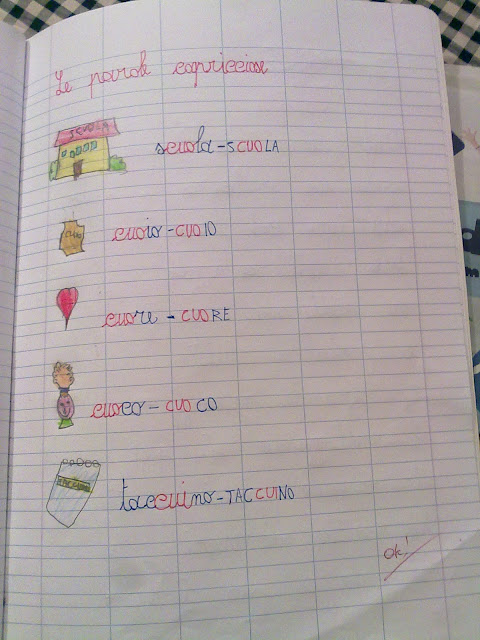 Le parole capricciose
SCUOLA
scuola-SCUOLA
CUOIO
cuoio-CUOIO
cuore - CUORE
cuoco - CUOCO
taccuino-TACCUINO
Ok!